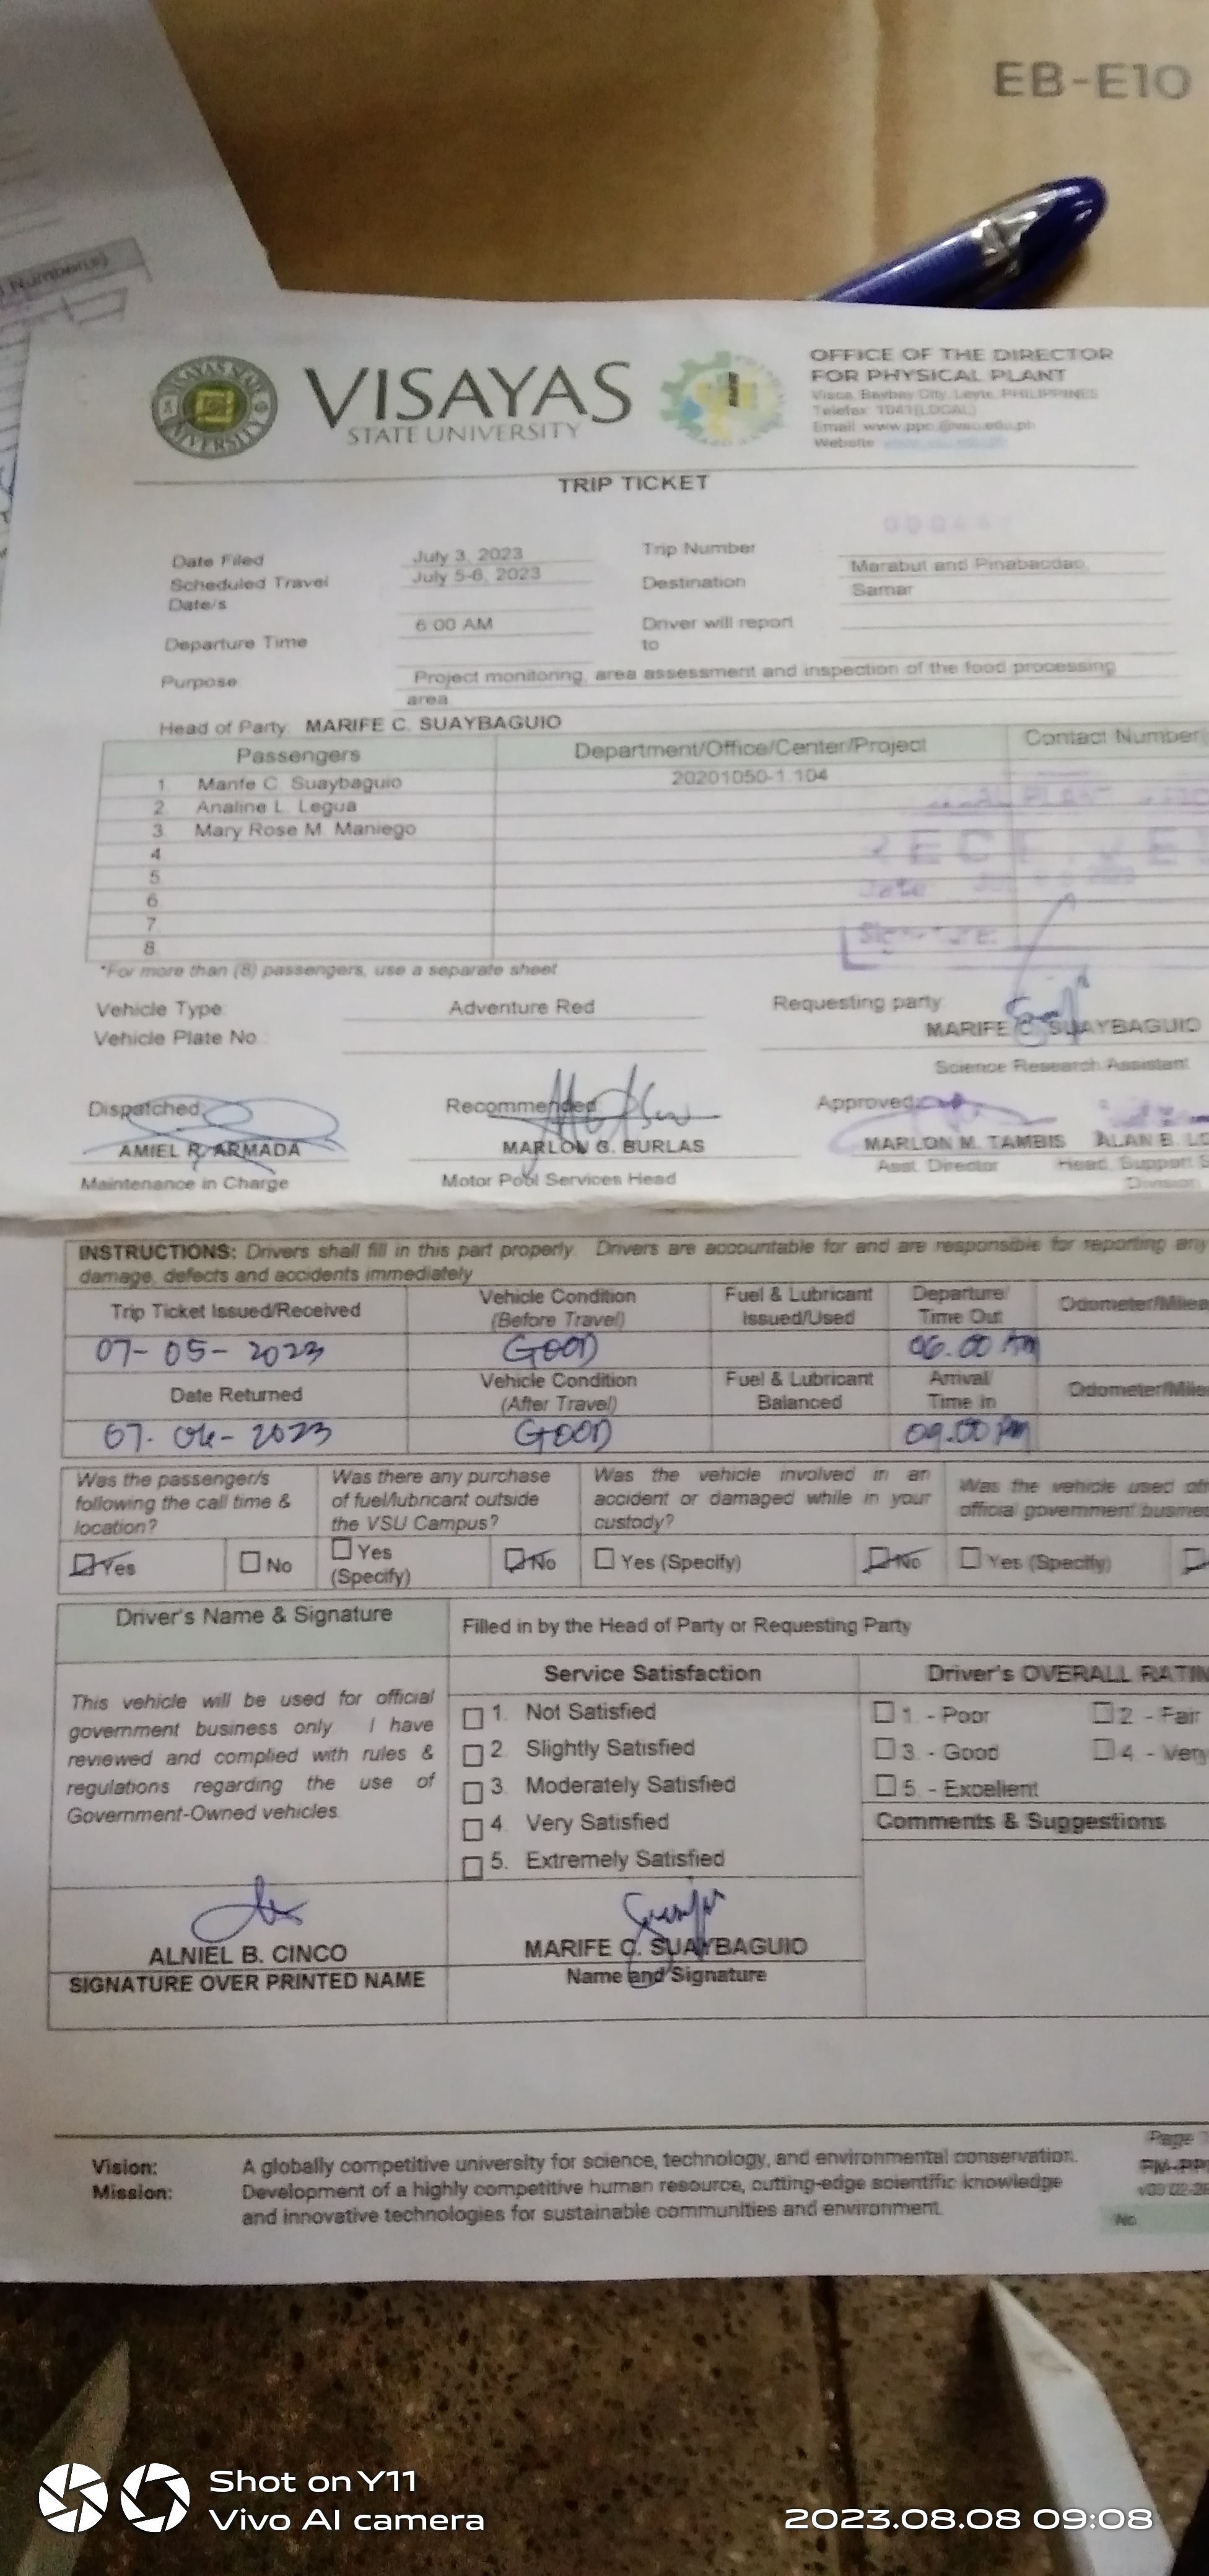 EB-E10
Number(s)
VISAYAS STATE UNIVERSITY
VISAYAS
STATE UNIVERSITY
OFFICE OF THE DIRECTOR
FOR PHYSICAL PLANT
Visca, Baybay City, Leyte, PHILIPPINES
Telefax: 1041(LOCAL)
Email:
Website:
TRIP TICKET
Date Filed July 3, 2023 Trip Number
Scheduled Travel Date/s July 5-6, 2023 Destination Marabut and Pinabacdao, Samar
Departure Time 6:00 AM Driver will report to
Purpose Project monitoring, area assessment and inspection of the food processing
area
Head of Party: MARIFE C. SUAYBAGUIO
Passengers Department/Office/Center/Project Contact Number
1. Marife C. Suaybaguio 20201050-1.104
2. Analine L. Legua
3. Mary Rose M. Maniego
4.
5.
6.
7.
8.
PLANT
Date
Signature:
*For more than (8) passengers, use a separate sheet
Vehicle Type: Adventure Red Requesting party:
Vehicle Plate No.: MARIFE C. SUAYBAGUIO
Science Research Assistant
Dispatched: Recommended: Approved:
AMIEL R. ARMADA MARLON G. BURLAS MARLON M. TAMBIS ALAN B. LO
Maintenance in Charge Motor Pool Services Head Asst. Director Head, Support S
Division
INSTRUCTIONS: Drivers shall fill in this part properly. Drivers are accountable for and are responsible for reporting any
damage, defects and accidents immediately
Trip Ticket Issued/Received Vehicle Condition (Before Travel) Fuel & Lubricant Issued/Used Departure/ Time Out Odometer/Milea
07-05-2023 GOOD 06:00 AM
Date Returned Vehicle Condition (After Travel) Fuel & Lubricant Balanced Arrival/ Time in Odometer/Milea
07-06-2023 GOOD 09:00 PM
Was the passenger/s following the call time & location? Was there any purchase of fuel/lubricant outside the VSU Campus? Was the vehicle involved in an accident or damaged while in your custody? Was the vehicle used official government busines
Yes No Yes (Specify) No Yes (Specify) No Yes (Specify)
Driver's Name & Signature Filled in by the Head of Party or Requesting Party
Service Satisfaction Driver's OVERALL RATIN
This vehicle will be used for official
government business only. I have
reviewed and complied with rules &
regulations regarding the use of
Government-Owned vehicles.
1. Not Satisfied
2. Slightly Satisfied
3. Moderately Satisfied
4. Very Satisfied
5. Extremely Satisfied
1. - Poor 2 - Fair
3. - Good 4 - Very
5. - Excellent
Comments & Suggestions
ALNIEL B. CINCO MARIFE C. SUAYBAGUIO
SIGNATURE OVER PRINTED NAME Name and Signature
Page
Vision: A globally competitive university for science, technology, and environmental conservation.
Mission: Development of a highly competitive human resource, cutting-edge scientific knowledge
and innovative technologies for sustainable communities and environment.
No.
Shot on Y11
Vivo AI camera
2023.08.08 09:08